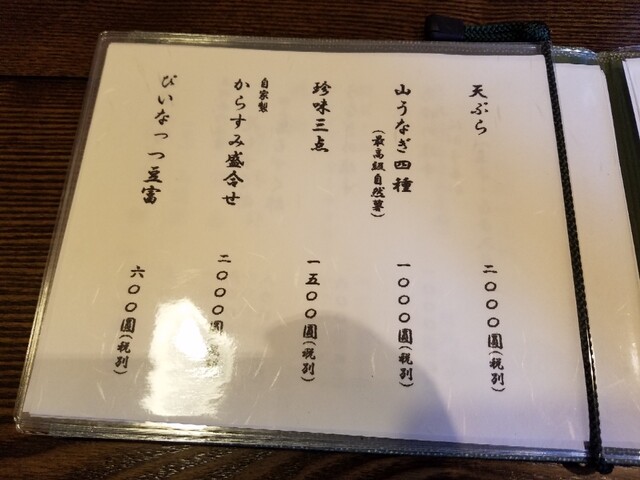 天ぷら
二〇〇〇圓(税別)
山うなぎ四種
(最高級自然薯)
一〇〇〇圓(税別)
珍味三点
一五〇〇圓(税別)
自家製
からすみ盛合せ
二〇〇〇圓(税別)
びいなっつ豆富
六〇〇圓(税別)